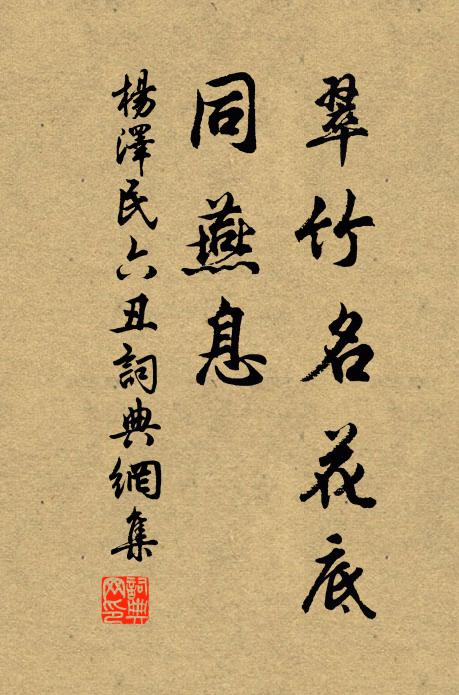 翠竹名花底
同燕息
楊澤民六丑詞典網集
詞典网印